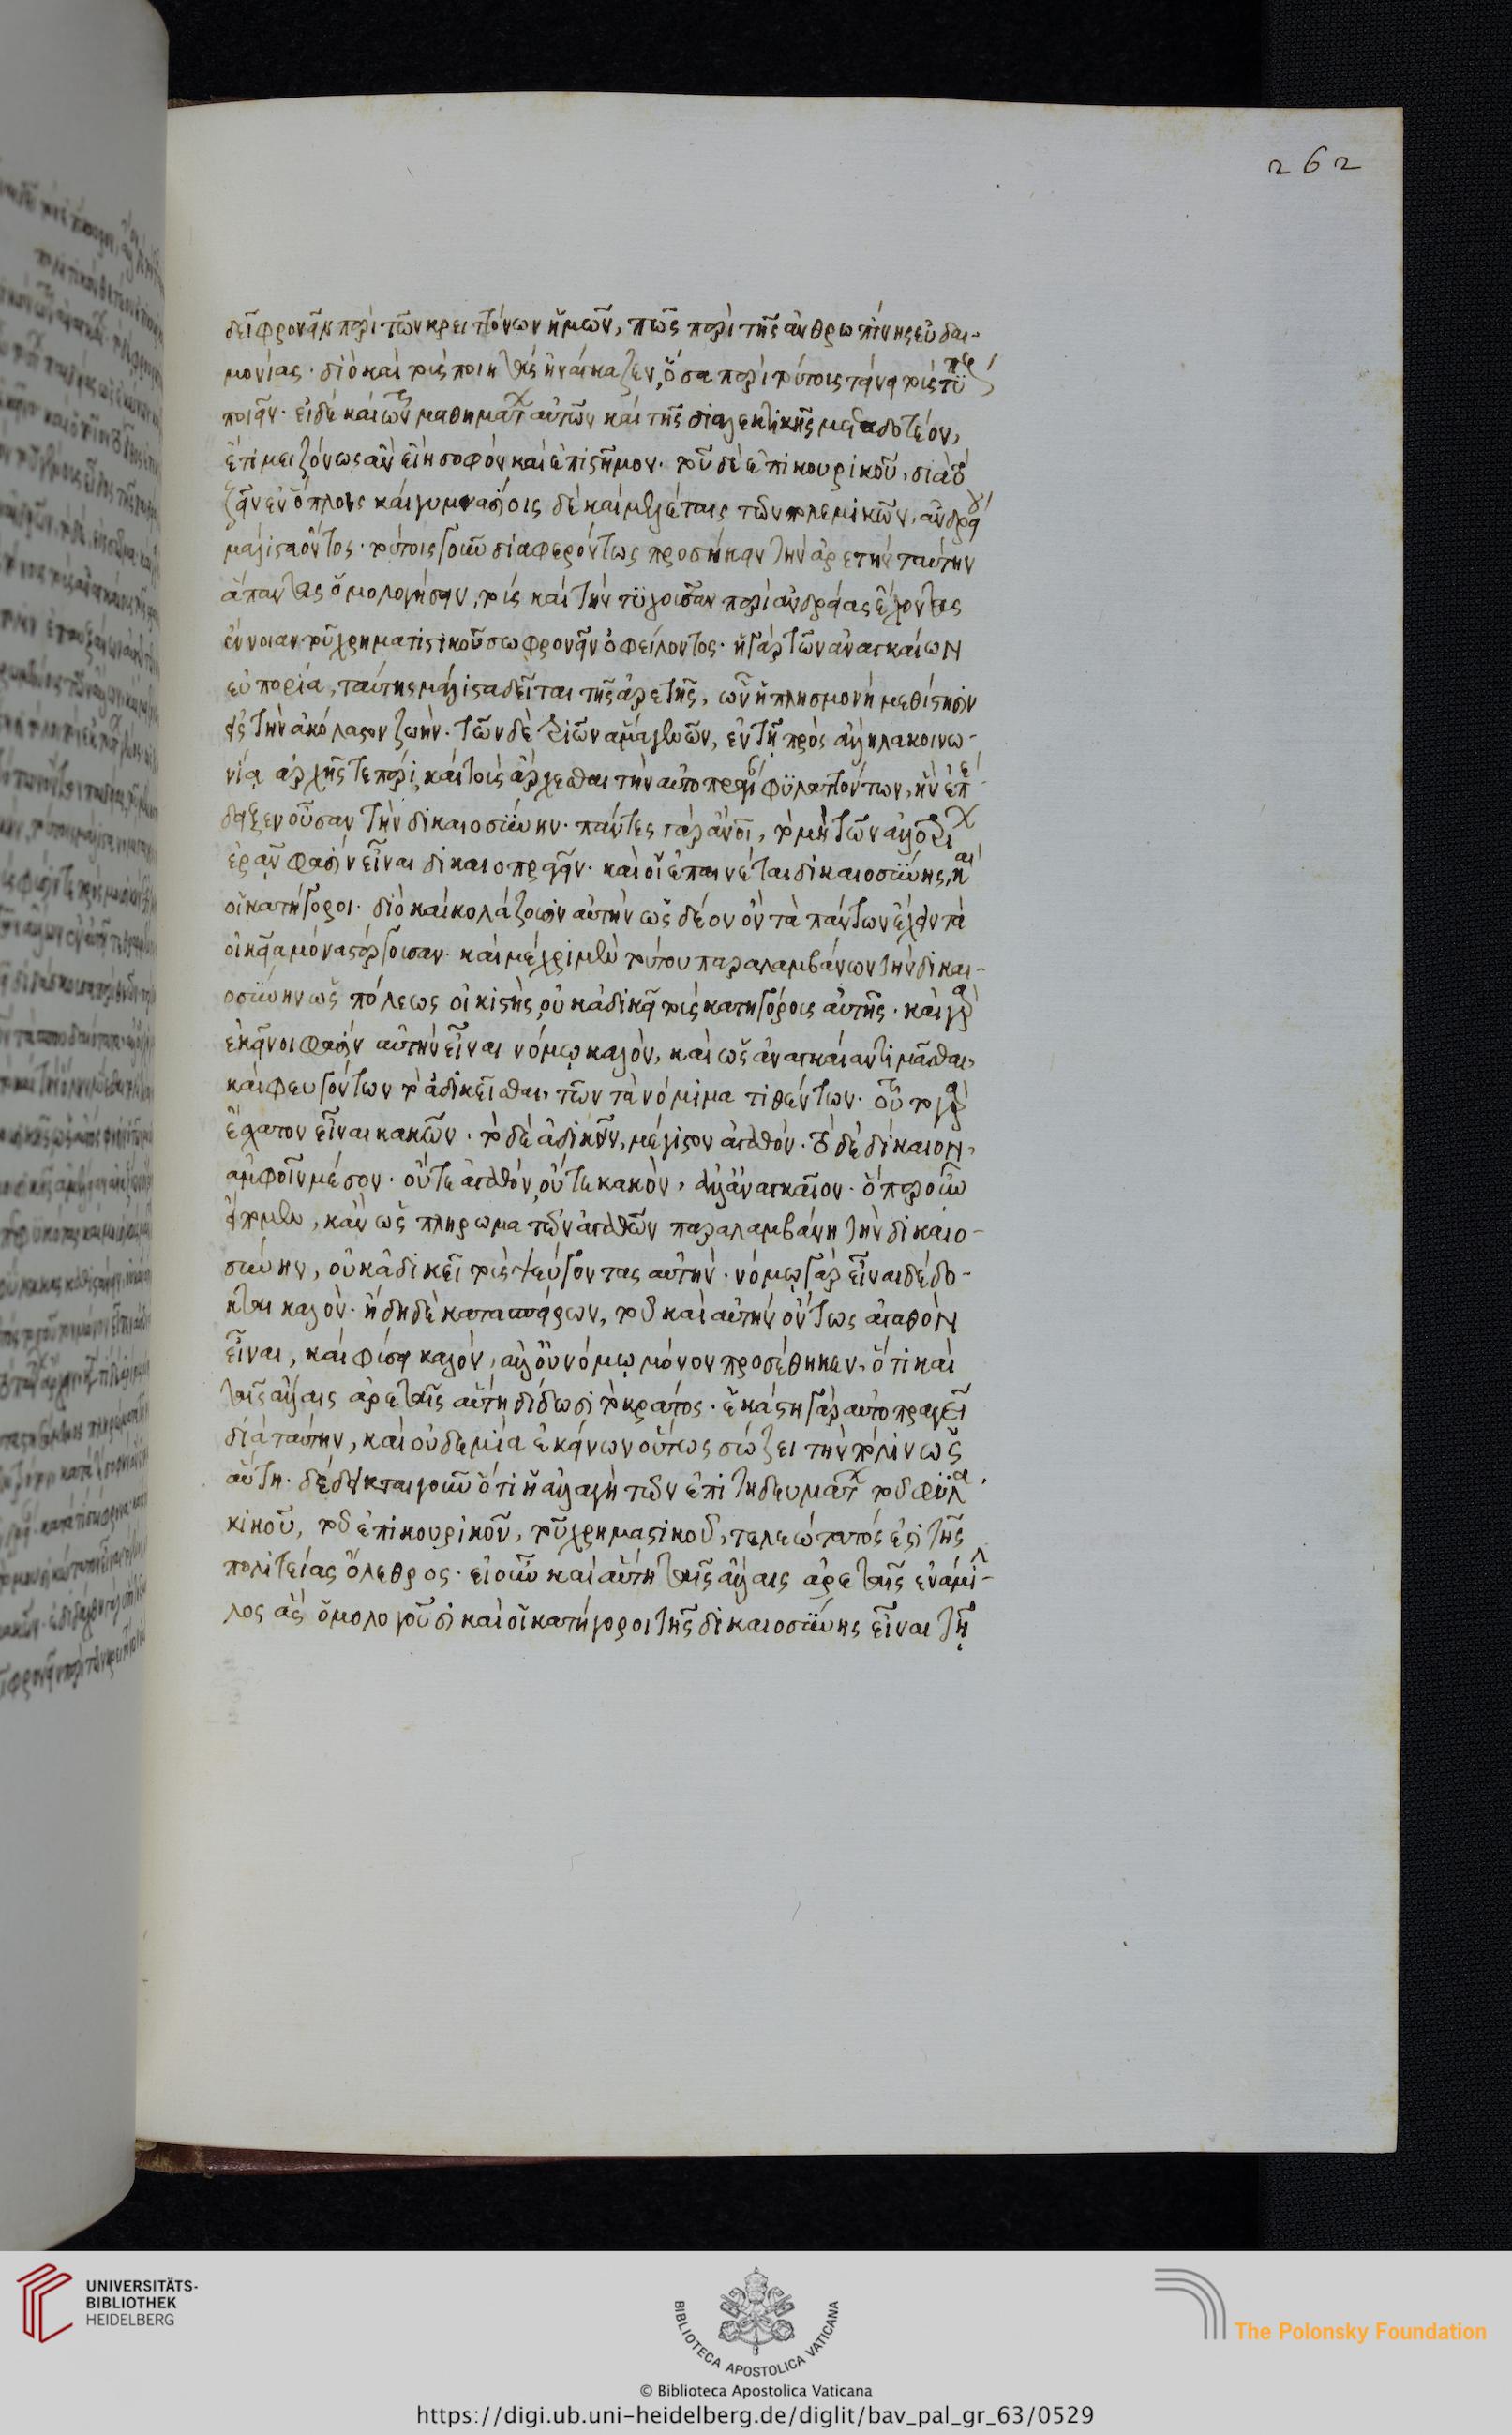 262
δεῖ φρονεῖν περὶ τῶν κρειττόνων ἡμῶν, πῶς περὶ τῆς ἀνθρωπίνης εὐδαι-
μονίας. διὸ καὶ τοὺς ποιητὰς ἠνάγκαζεν, ὅσα περὶ τούτοις τείνει τοὺς τύπους
ποιεῖν. εἰ δὲ καὶ τῶν μαθημάτων αὐτῶν καὶ τῆς διαλεκτικῆς μεταδοτέον,
ἔτι μειζόνως ἂν εἴη σοφὸν καὶ ἐπιστῆμον. τοῦ δὲ ἐπικουρικοῦ, διὰ τὸ
ζῆν ἐν ὅπλοις καὶ γυμνασίοις δὲ καὶ μελέταις τῶν πολεμικῶν, ἀνδρείου
μάλιστα ὄντος. τούτοις γοῦν διαφερόντως προσήκειν τὴν ἀρετὴν ταύτην
ἅπαντας ὁμολογήσειν, τοὺς καὶ τὴν τυχοῦσαν περὶ ἀνδρείας ἔχοντας
ἔννοιαν τοῦ χρηματιστικοῦ σωφρονεῖν ὀφείλοντος. ἡ γὰρ τῶν ἀναγκαίων
εὐπορία, ταύτης μάλιστα δεῖται τῆς ἀρετῆς, ὧν ἡ πλησμονὴ μεθίστησιν
εἰς τὴν ἀκόλαστον ζωήν. τῶν δὲ τριῶν ἅμα γενῶν, ἐν τῇ πρὸς ἄλληλα κοινω-
νίᾳ ἀρχῆς τε πέρι καὶ τοῦ ἄρχεσθαι τὴν αὐτοπραγίαν φυλαττόντων, ἣν ἐπέ-
δειξεν οὖσαν τὴν δικαιοσύνην. πάντες γὰρ ἂν, τὸ μὴ τῶν ἀλλοτρίων
ἐρᾶν φασὶν εἶναι δικαιοπραγεῖν. καὶ οἱ ἐπαινέται δικαιοσύνης, καὶ
οἱ κατήγοροι. διὸ καὶ κολάζουσιν αὐτὴν ὡς δέον ὂν τὰ πάντων ἔχειν τὰ
οἰκεῖα μόνα στέργουσαν. καὶ μέχρι μὲν τούτου παραλαμβάνων τὴν δικαι-
οσύνην ὡς πόλεως οἰκιστής, οὐκ ἀδικεῖ τοὺς κατηγόρους αὐτῆς. καὶ γὰρ
ἐκεῖνοι φασὶν αὐτὴν εἶναι νόμῳ καλὸν, καὶ ὡς ἀναγκαῖαν τιμᾶσθαι,
καὶ φευγόντων τὸ ἀδικεῖσθαι, τῶν τὰ νόμιμα τιθέντων. τοῦτο γὰρ
ἔσχατον εἶναι κακῶν. τὸ δὲ ἀδικεῖν, μέγιστον ἀγαθόν. τὸ δὲ δίκαιον,
ἀμφοῖν μέσον. οὔτε ἀγαθόν, οὔτε κακὸν, ἀλλ' ἀναγκαῖον. ὅπερ οὖν
εἶπομεν, κἂν ὡς πλήρωμα τῶν ἀγαθῶν παραλαμβάνῃ τὴν δικαιο-
σύνην, οὐκ ἀδικεῖ τοὺς ψέγοντας αὐτήν. νόμῳ γὰρ εἶναι δέδο-
κται καλὸν. ἤδη δὲ κατασπείρων, τοῦ καὶ αὐτὴν ὄντως ἀγαθὸν
εἶναι, καὶ φύσει καλόν, ἀλλ' οὐ νόμῳ μόνον προσέθηκεν, ὅτι καὶ
ταῖς ἄλλαις ἀρεταῖς αὕτη δίδωσι τὸ κράτος. ἑκάστη γὰρ αὐτοπραγεῖ
διὰ ταύτην, καὶ οὐδεμία ἐκείνων οὕτως σώζει τὴν πόλιν ὡς
αὕτη. δέδεικται γοῦν ὅτι ἡ ἀλλαγὴ τῶν ἐπιτηδευμάτων τοῦ φυλα-
κικοῦ, τοῦ ἐπικουρικοῦ, τοῦ χρηματιστικοῦ, τελεώτατός ἐστι τῆς
πολιτείας ὄλεθρος. εἰ οὖν καὶ αὕτη ταῖς ἄλλαις ἀρεταῖς ἐνάμιλ-
λος ἃς ὁμολογοῦσι καὶ οἱ κατήγοροι τῆς δικαιοσύνης εἶναι τῇ
UNIVERSITÄTS-
BIBLIOTHEK
HEIDELBERG
BIBLIOTECA APOSTOLICA VATICANA
The Polonsky Foundation
© Biblioteca Apostolica Vaticana
https://digi.ub.uni-heidelberg.de/diglit/bav_pal_gr_63/0529